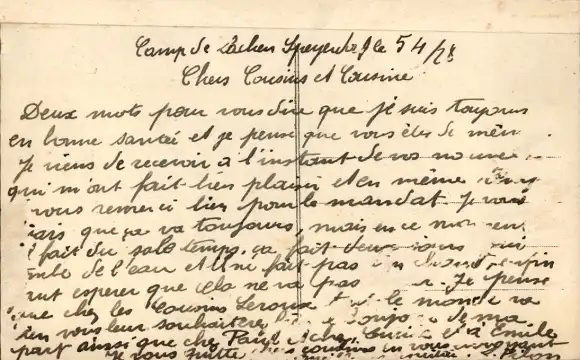 Camp de Lachen Speyerdorf le 5 4/28
Chers Cousins et Cousine
Deux mots pour vous dire que je suis toujours
en bonne santée et je pense que vous êtes de même
Je viens de recevoir à l'instant de vos nouvelles
qui m'ont fait bien plaisir et en même temps
vous remerci bien pour le mandat Je vous
dirais que ça va toujours, mais en ce moment
il fait du sale temps. ça fait deux jours qui
tombe de l'eau et il ne fait pas chaud enfin
faut esperer que cela ne va pas Je pense
que chez les Cousins Leroux tout le monde va
bien vous leur souhaiterez de ma
part ainsi que chez Emile
Je vous quitte Cousins en vous envoyant